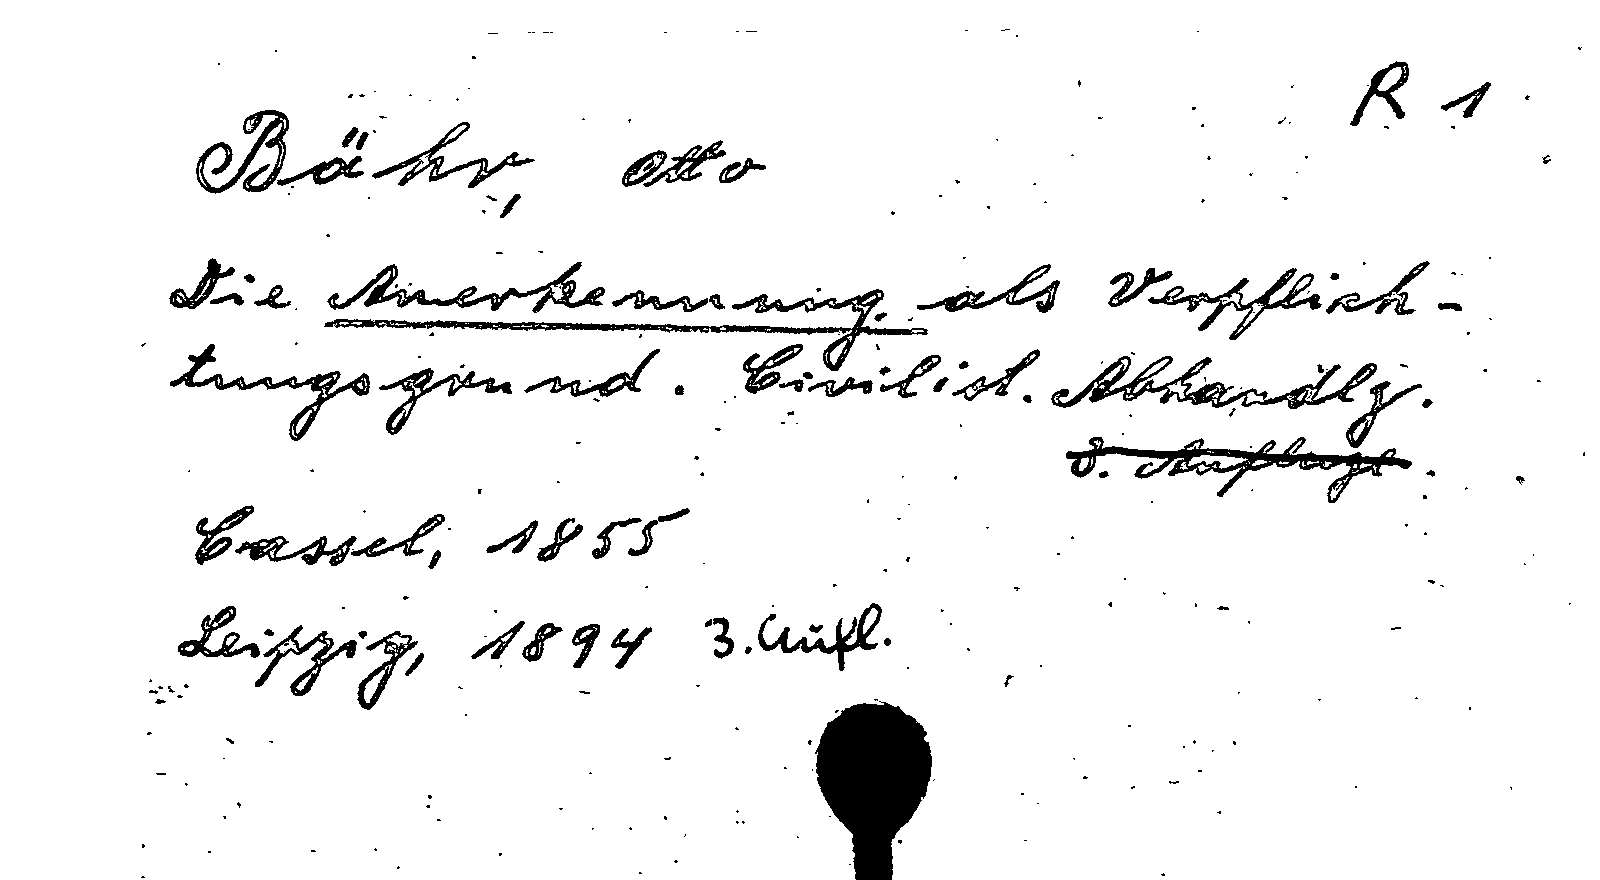 R 1
Bähr, Otto
Die Anerkennung als Verpflich-
tungsgrund. Civilist. Abhandlg.
3. Auflage.
Cassel, 1855
Leipzig, 1894 3. Aufl.